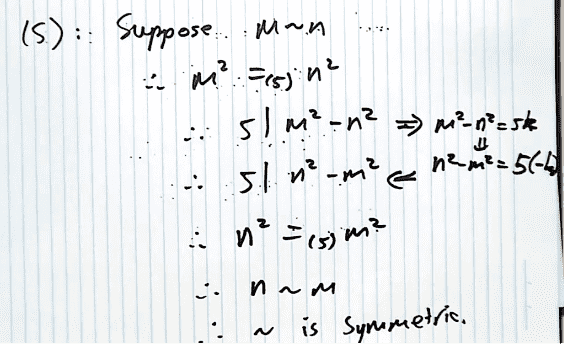 (S) :: Suppose m ~ n
∴ m² ≡(5) n²
∴ 5 | m² - n² ⇒ m² - n² = 5k
⇓
∴ 5 | n² - m² ⇐ n² - m² = 5(-k
∴ n² ≡(5) m²
∴ n ~ m
∴ ~ is symmetric.